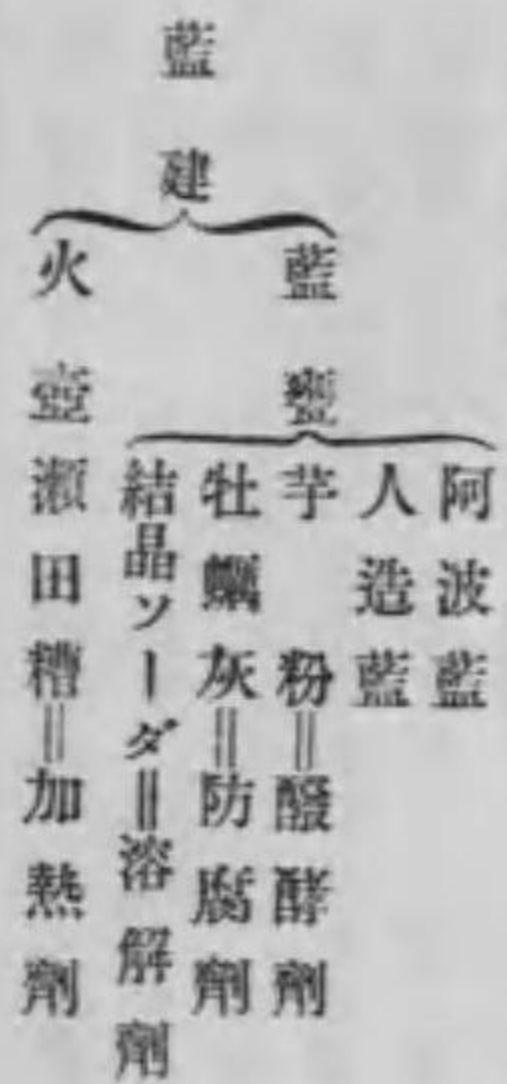 藍建
藍甕
阿波藍
人造藍
芋粉=醱酵劑
牡蠣灰=防腐劑
結晶ソーダ=溶解劑
火壺
瀬田糟=加熱劑